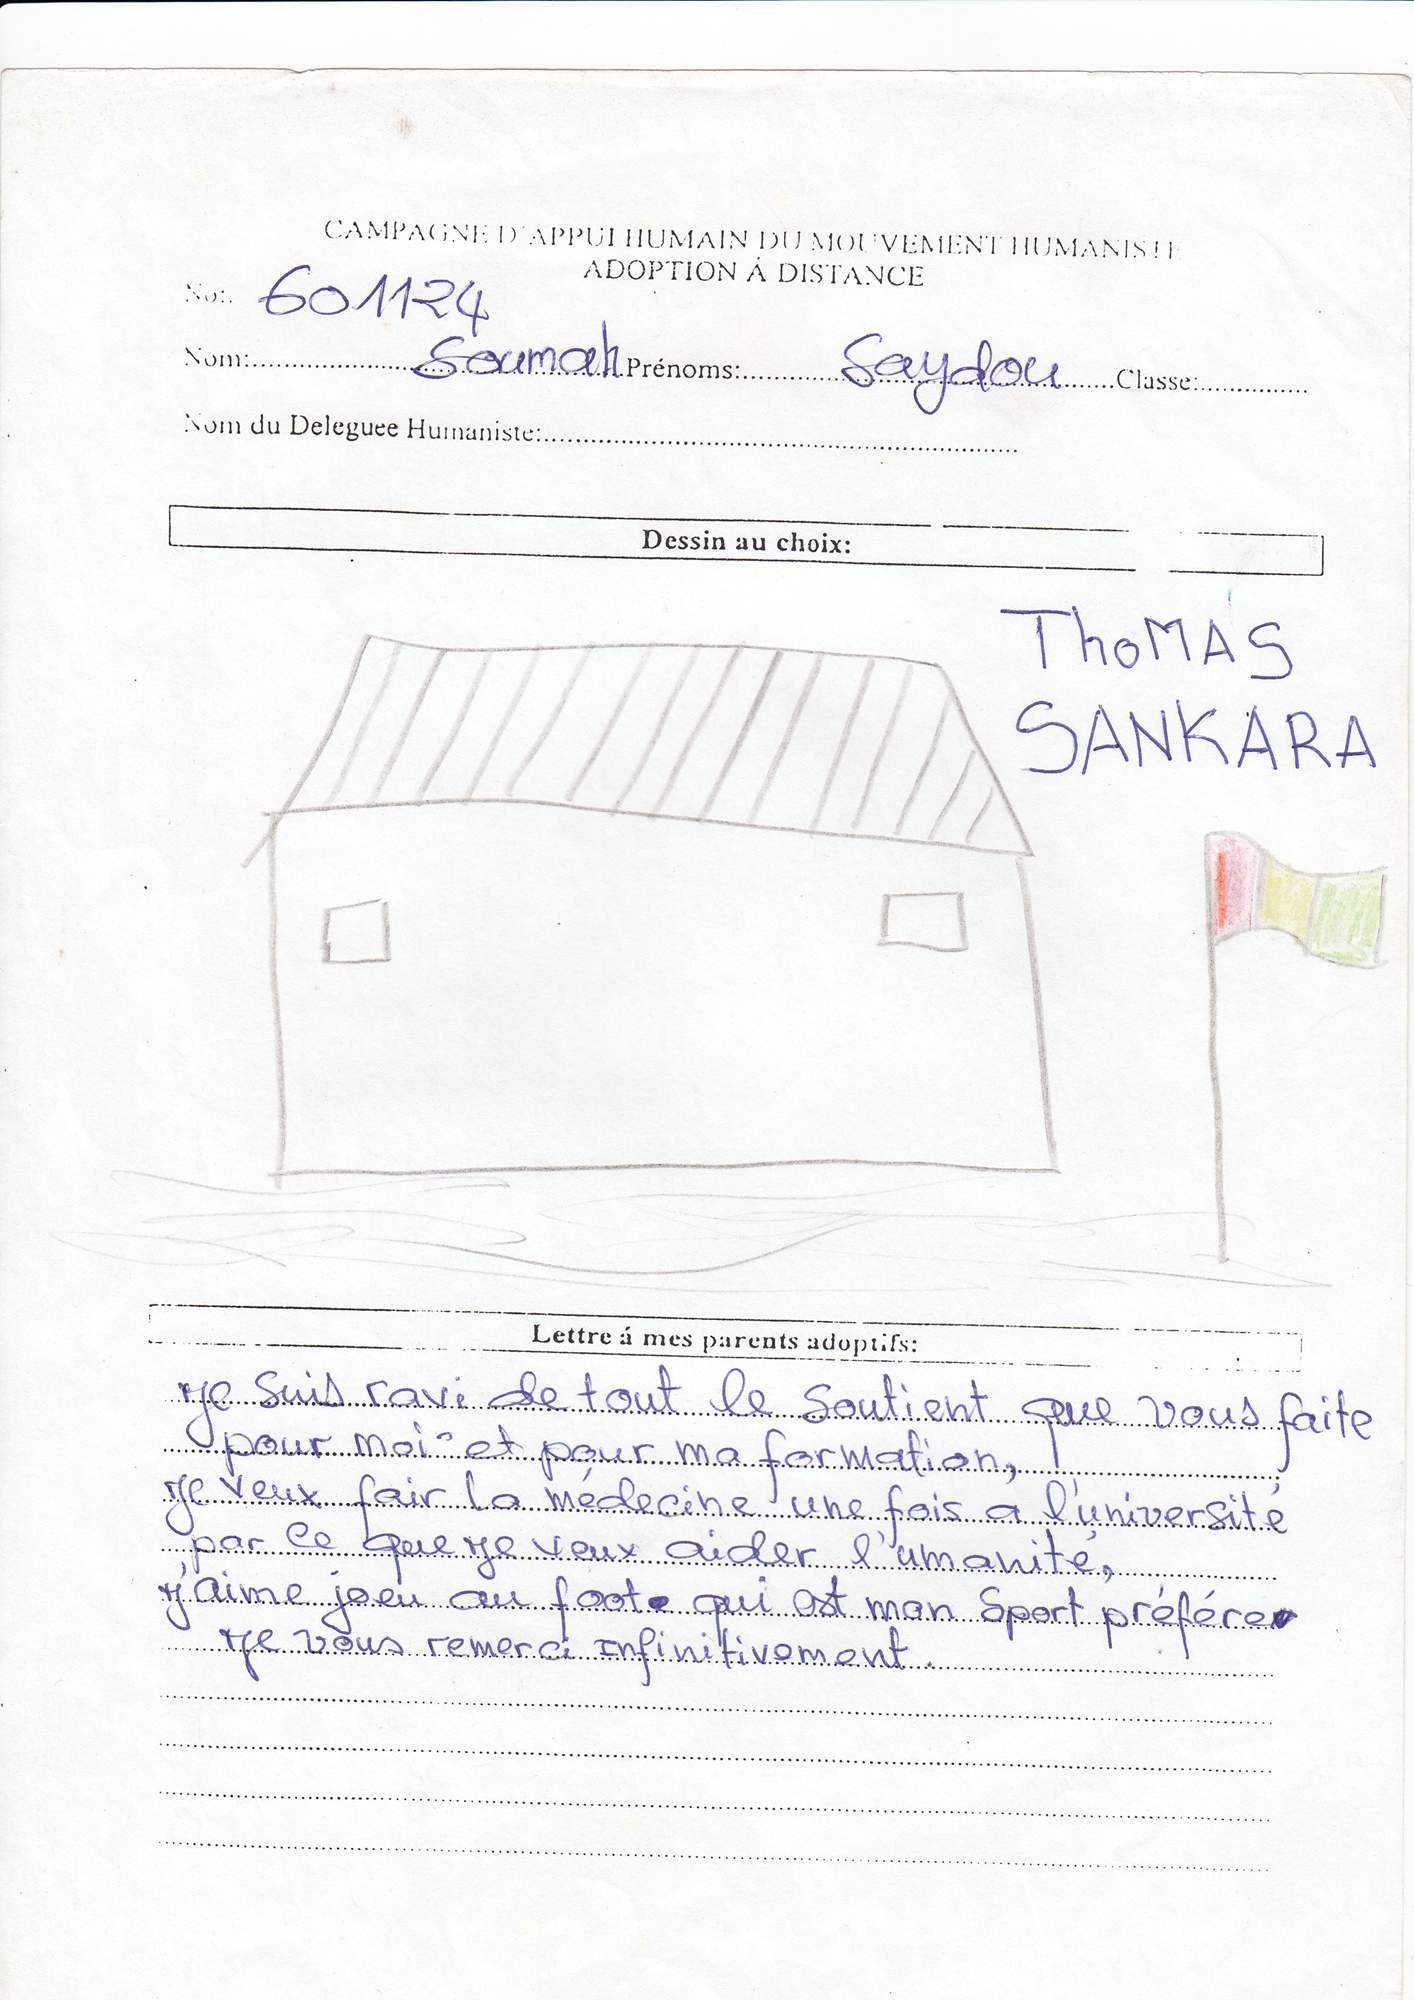 CAMPAGNE D'APPUI HUMAIN DU MOUVEMENT HUMANISTE
ADOPTION Á DISTANCE
No: 601124
Nom: Soumah Prénoms: Saydou Classe:
Nom du Deleguee Humaniste:
Dessin au choix:
ThoMAS
SANKARA
Lettre á mes parents adoptifs:
Je suis ravi de tout le soutient que vous faite
pour moi et pour ma formation,
Je veux fair la médecine une fois a l'université
par ce que je veux aider l'umanité,
j'aime joeu au foot qui est mon sport préfére
Je vous remerci infinitivement.